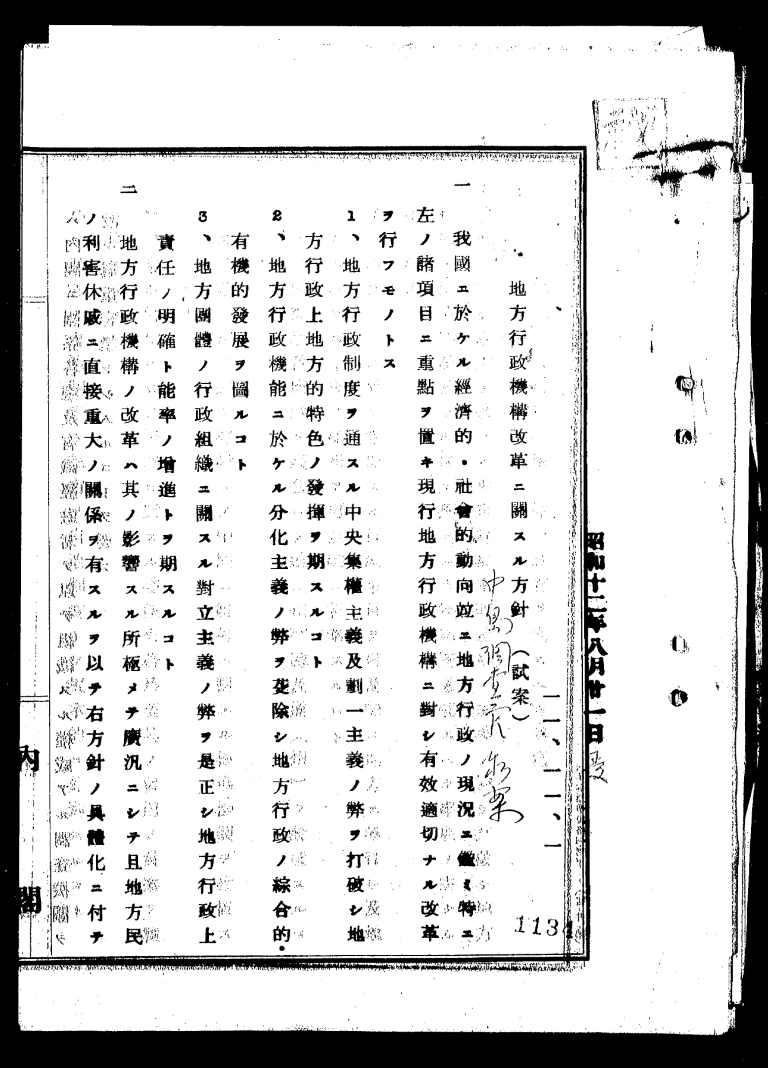 昭和十二年八月廿一日 受
地方行政機構改革ニ關スル方針(試案)
一一、一一、一
中島調査官私案
一 我國ニ於ケル經濟的・社會的動向竝ニ地方行政ノ現況ニ鑑ミ特ニ
左ノ諸項目ニ重點ヲ置キ現行地方行政機構ニ對シ有效適切ナル改革
ヲ行フモノトス
1、地方行政制度ヲ通スル中央集權主義及劃一主義ノ弊ヲ打破シ地
方行政上地方的特色ノ發揮ヲ期スルコト
2、地方行政機能ニ於ケル分化主義ノ弊ヲ芟除シ地方行政ノ綜合的・
有機的發展ヲ圖ルコト
3、地方團體ノ行政組織ニ關スル對立主義ノ弊ヲ是正シ地方行政上
責任ノ明確ト能率ノ增進トヲ期スルコト
二 地方行政機構ノ改革ハ其ノ影響スル所極メテ廣況ニシテ且地方民
ノ利害休戚ニ直接重大ノ關係ヲ有スルヲ以テ右方針ノ具體化ニ付テ
內閣
1134